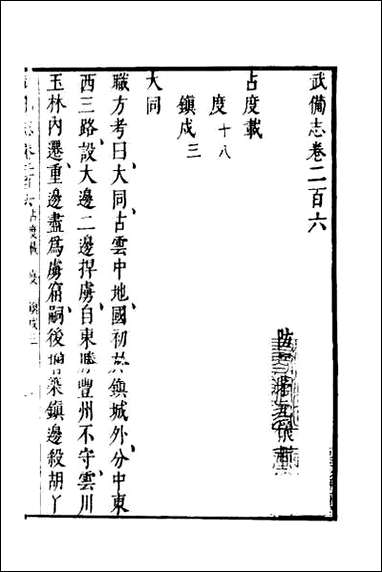 武備志卷二百六
占度載
度 十八
鎮戍三
大同
職方考曰大同古雲中地國初於鎮城外分中東
西三路設大邊二邊捍虜自東勝豐州不守雲川
玉林內遷重邊盡為虜窟嗣後增築鎮邊殺胡丫
占度載 度 鎮戍三